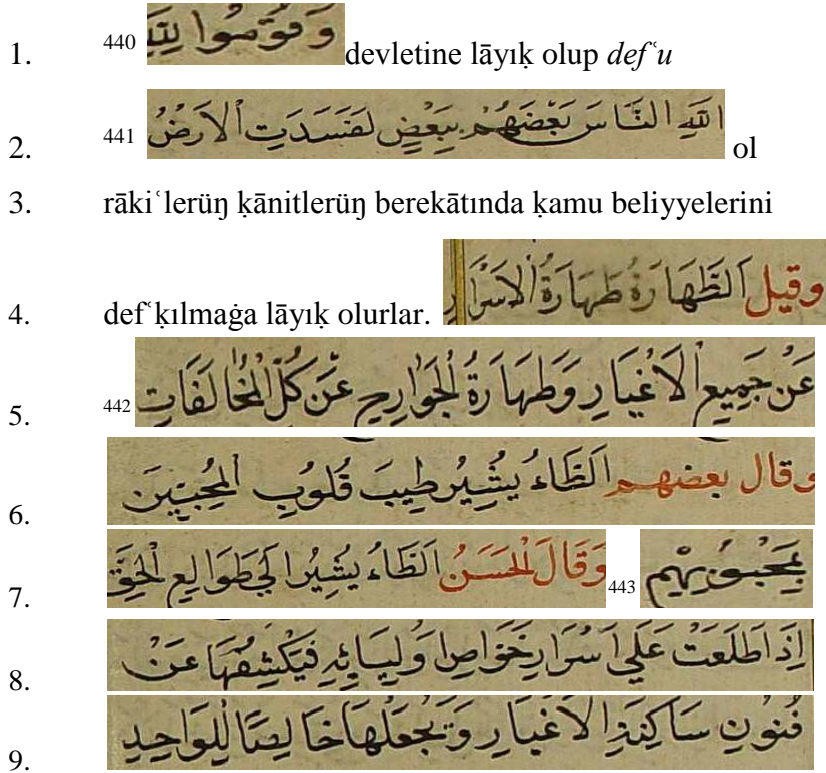 1. 440 وَقُومُوا لِلّٰهِ devletine lāyıḳ olup defʿu
2. 441 اللهِ النَّاسَ بَعْضَهُمْ بِبَعْضٍ لَفَسَدَتِ الْاَرْضُ ol
3. rākiʿlerüŋ ḳānitlerüŋ berekātında ḳamu beliyyelerini
4. defʿḳılmaġa lāyıḳ olurlar. وقيل اَلطَّهَارَةُ طَهَارَةُ الْاَسْرَارِ
5. 442 عَنْ جَمِيعِ الْاَغْيَارِ وَطَهَارَةُ الْجَوَارِحِ عَنْ كُلِّ الْمُخَالَفَاتِ
6. وقال بعضهم اَلطَّاءُ يُشِيرُ طِيبَ قُلُوبِ الْمُحِبِّينَ
7. بِمَحْبُوبِهِمْ 443 وَقَالَ الْحَسَنُ اَلطَّاءُ يُشِيرُ اِلَى طَوَالِعِ الْحَقِّ
8. اِذَا طَلَعَتْ عَلَى اَسْرَارِ خَوَاصِ اَوْلِيَائِهِ فَيَكْشِفُهَا عَنْ
9. فُنُونِ سَاكِنَةِ الْاَغْيَارِ وَيَجْعَلُهَا خَالِصًا لِلْوَاحِدِ